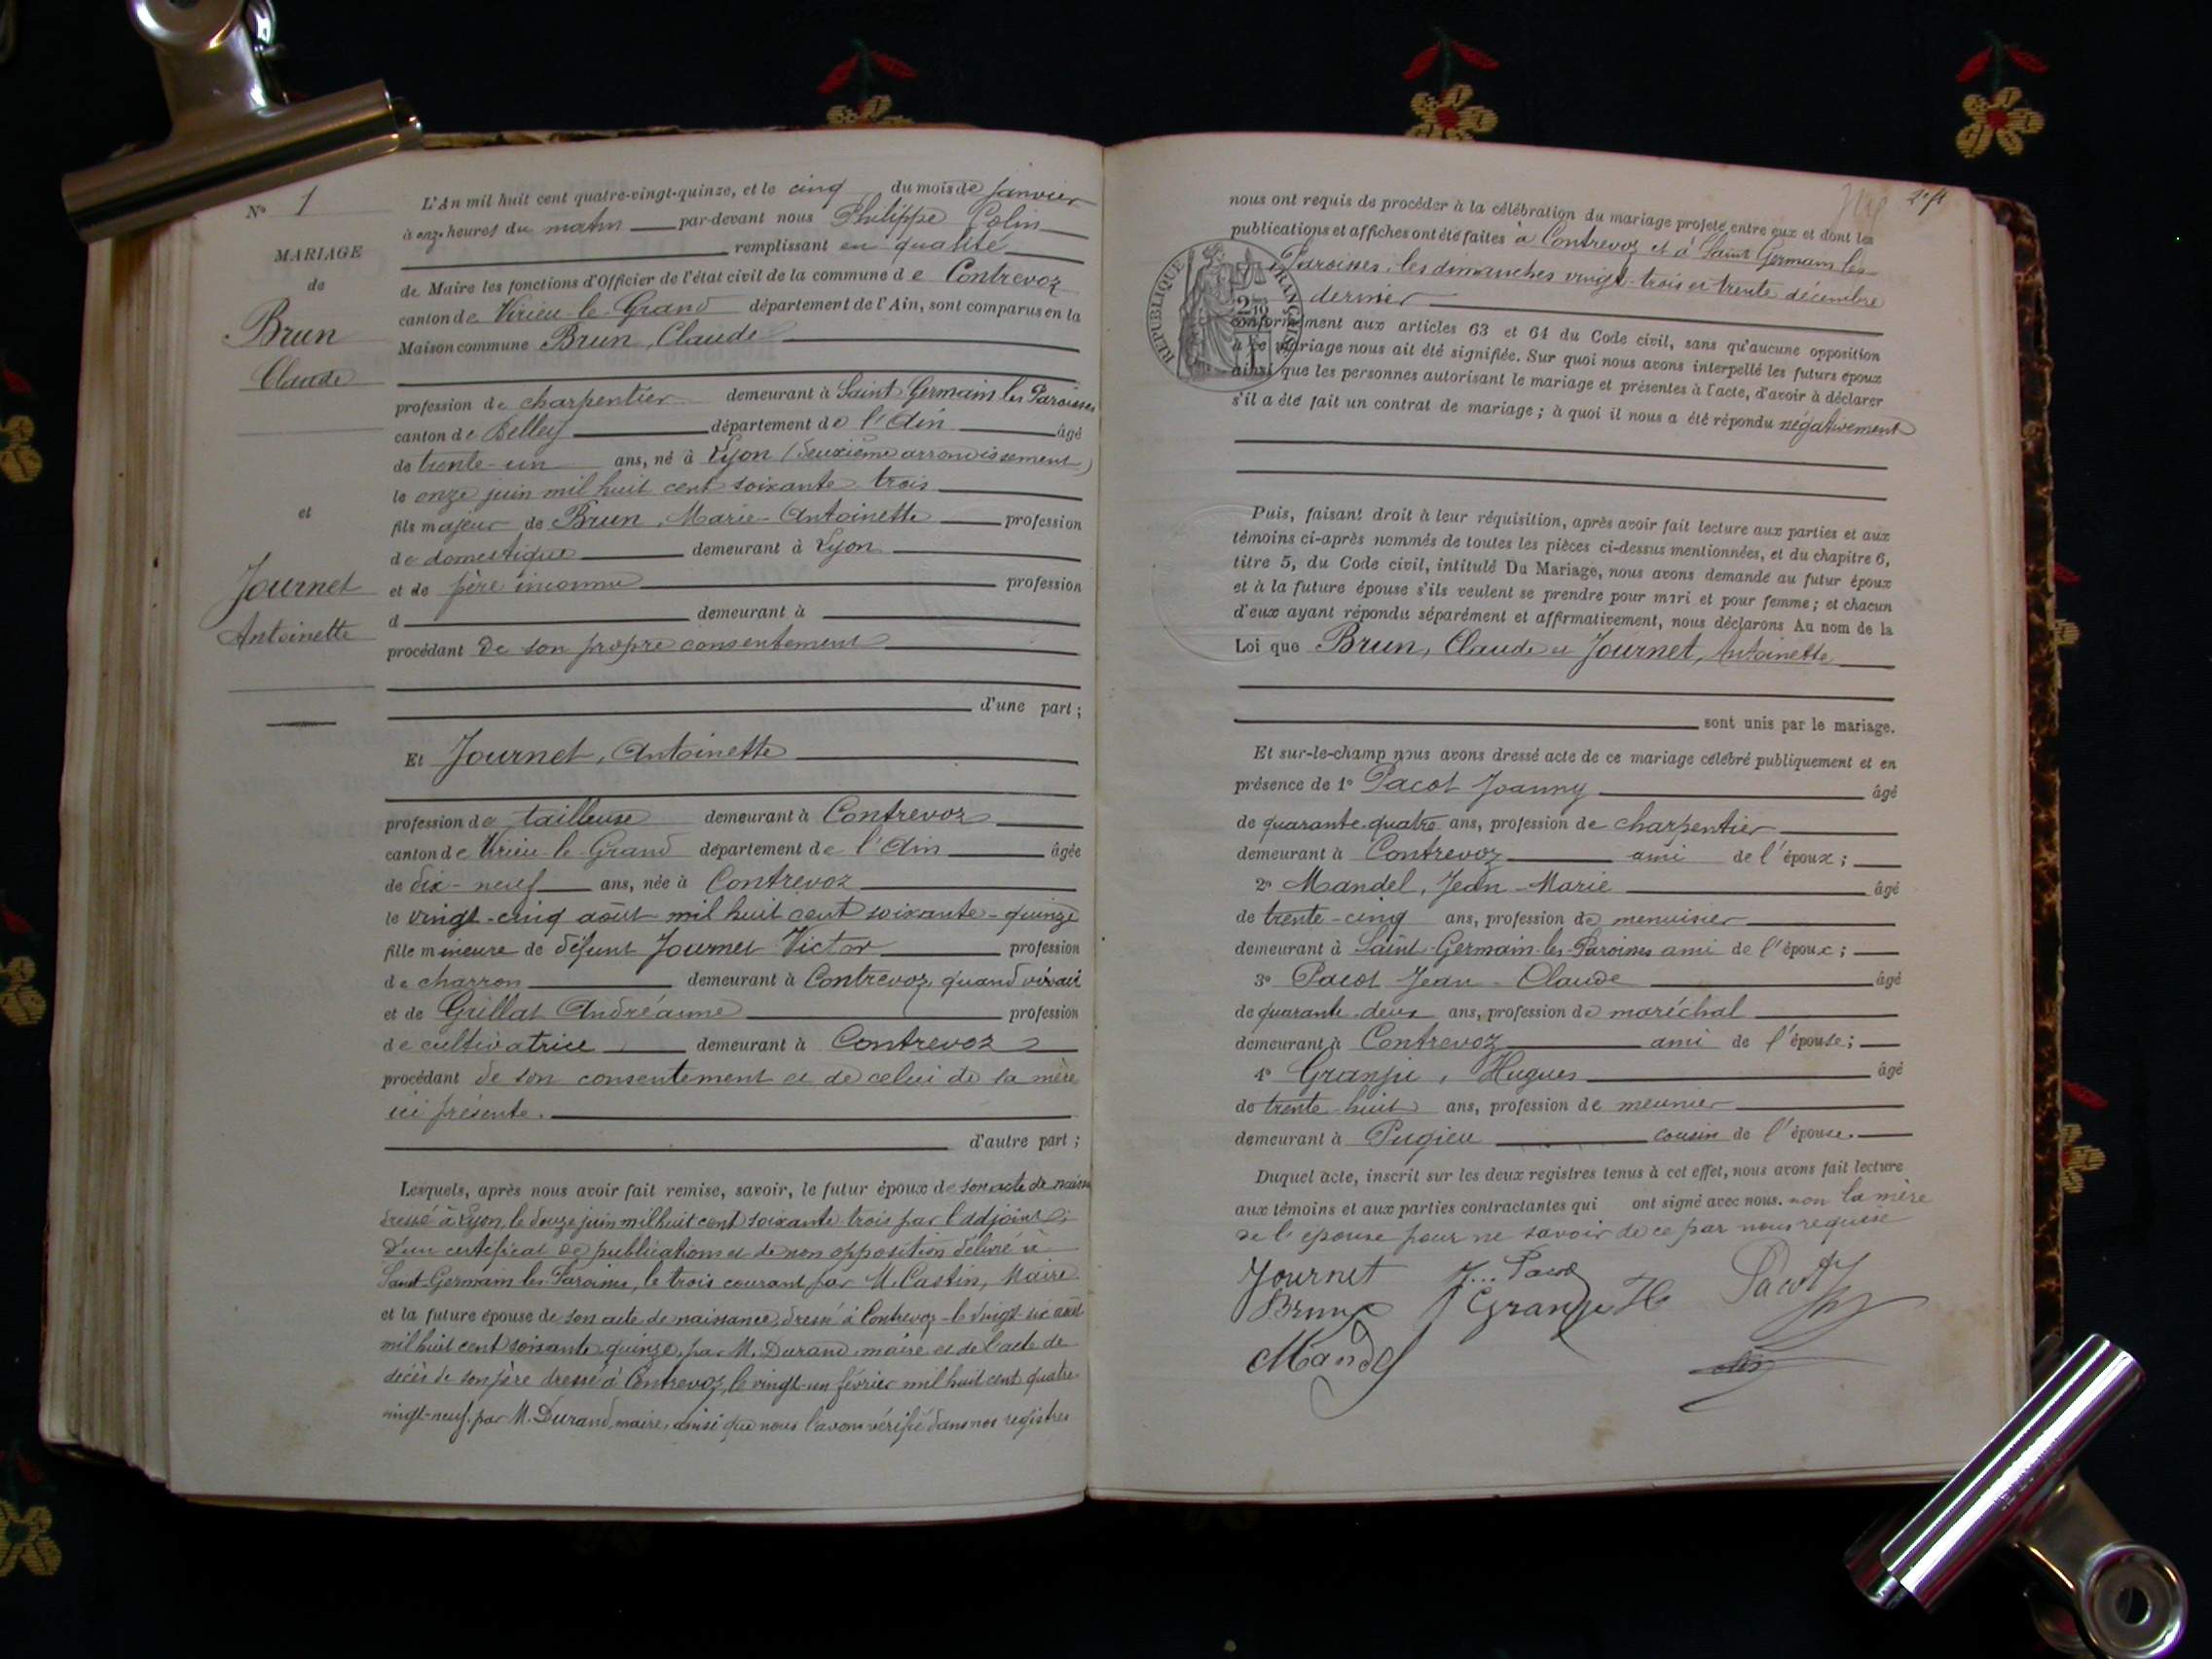 N° 1
MARIAGE
de
Brun
Claude
et
Journet
Antoinette
L'An mil huit cent quatre-vingt-quinze, et le cinq du mois de janvier
à onze heures du matin par-devant nous Philippe Colin
remplissant en qualité
de Maire les fonctions d'Officier de l'état civil de la commune de Contrevoz
canton de Virieu-le-Grand département de l'Ain, sont comparus en la
Maison commune Brun, Claude
profession de charpentier demeurant à Saint Germain les Paroisses
canton de Belley département de l'Ain âgé
de trente-un ans, né à Lyon (deuxième arrondissement)
le onze juin mil huit cent soixante trois
fils majeur de Brun, Marie-Antoinette profession
de domestique demeurant à Lyon
et de père inconnu profession
d demeurant à
procédant de son propre consentement
d'une part ;
Et Journet, Antoinette
profession de tailleuse demeurant à Contrevoz
canton de Virieu-le-Grand département de l'Ain âgée
de dix-neuf ans, née à Contrevoz
le vingt-cinq août mil huit cent soixante-quinze
fille mineure de défunt Journet Victor profession
de charron demeurant à Contrevoz quand vivait
et de Grillat Andréanne profession
de cultivatrice demeurant à Contrevoz
procédant de son consentement et de celui de sa mère
ici présente.
d'autre part ;
Lesquels, après nous avoir fait remise, savoir, le futur époux de son acte de
dressé à Lyon, le douze juin mil huit cent soixante trois par l'adjoint
d'un certificat de publications et de non opposition délivré à
Saint-Germain les Paroisses, le trois courant par M. Castin, Maire
et la future épouse de son acte de naissance, dressé à Contrevoz le vingt-six août
mil huit cent soixante quinze, par M. Durand, maire et de l'acte de
décès de son père dressé à Contrevoz, le vingt-un février mil huit cent quatre-
vingt-neuf, par M. Durand, maire, ainsi que nous l'avons vérifié dans nos registres
nous ont requis de procéder à la célébration du mariage projeté entre eux et dont les
publications et affiches ont été faites à Contrevoz et à Saint Germain les
Paroisses, les dimanches vingt-trois et trente décembre
dernier
RÉPUBLIQUE FRANÇAISE
conformément aux articles 63 et 64 du Code civil, sans qu'aucune opposition
à ce mariage nous ait été signifiée. Sur quoi nous avons interpellé les futurs époux
ainsi que les personnes autorisant le mariage et présentes à l'acte, d'avoir à déclarer
s'il a été fait un contrat de mariage ; à quoi il nous a été répondu négativement
Puis, faisant droit à leur réquisition, après avoir fait lecture aux parties et aux
témoins ci-après nommés de toutes les pièces ci-dessus mentionnées, et du chapitre 6,
titre 5, du Code civil, intitulé Du Mariage, nous avons demandé au futur époux
et à la future épouse s'ils veulent se prendre pour mari et pour femme ; et chacun
d'eux ayant répondu séparément et affirmativement, nous déclarons Au nom de la
Loi que Brun, Claude et Journet, Antoinette
sont unis par le mariage.
Et sur-le-champ nous avons dressé acte de ce mariage célébré publiquement et en
présence de 1° Pacot Joanny âgé
de quarante-quatre ans, profession de charpentier
demeurant à Contrevoz ami de l'époux ;
2° Mandel, Jean-Marie âgé
de trente-cinq ans, profession de menuisier
demeurant à Saint-Germain-les-Paroisses ami de l'époux ;
3° Pacot Jean-Claude âgé
de quarante-deux ans, profession de maréchal
demeurant à Contrevoz ami de l'épouse ;
4° Granju, Hugues âgé
de trente-huit ans, profession de meunier
demeurant à Pugieu cousin de l'épouse.
Duquel acte, inscrit sur les deux registres tenus à cet effet, nous avons fait lecture
aux témoins et aux parties contractantes qui ont signé avec nous. non la mère
de l'épouse pour ne savoir de ce par nous requise
Journet J... Pacot Pacot
Brun Granju H
Mandel